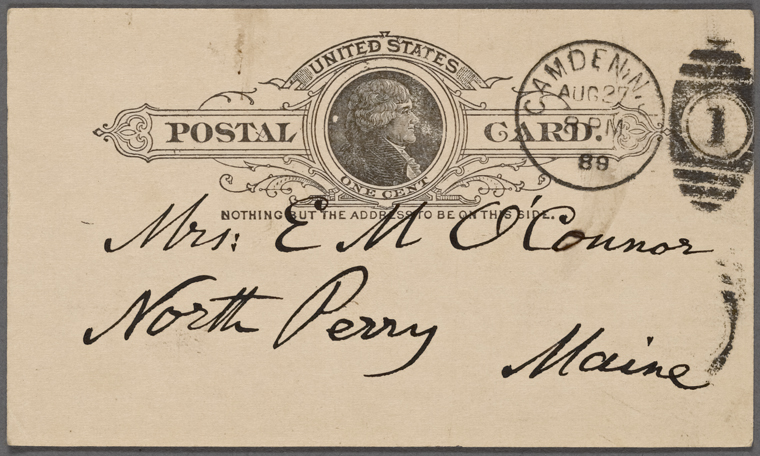 UNITED STATES
POSTAL CARD.
ONE CENT
NOTHING BUT THE ADDRESS TO BE ON THIS SIDE.
CAMDEN, N.J.
AUG 27
8 PM
89
1
Mrs: E M O'Connor
North Perry
Maine